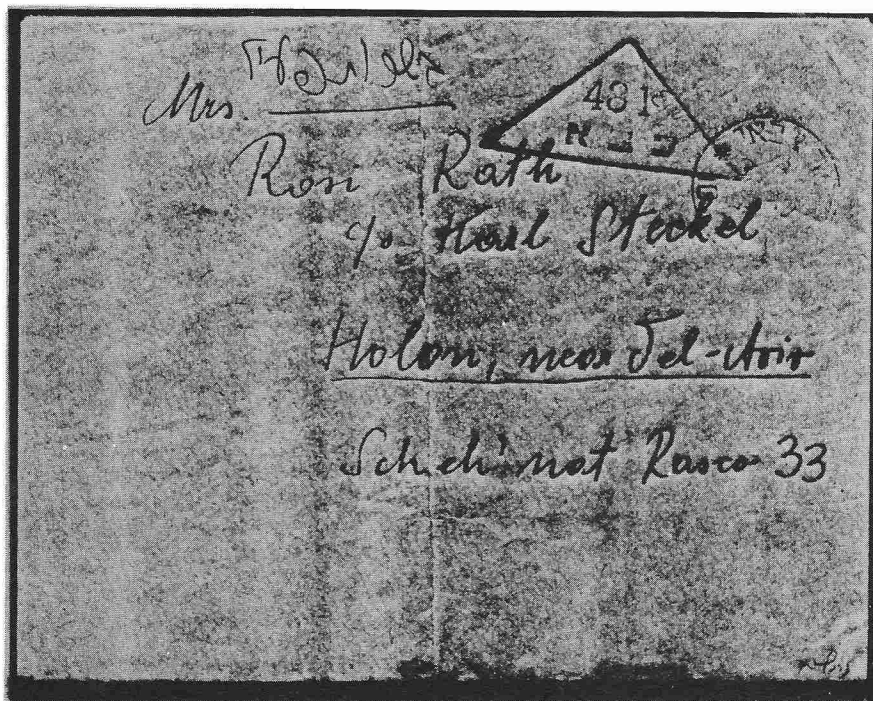 Mrs.
4819
Rosi Rath
c/o Karl Steckel
Holon, near Tel-Aviv
Schchunat Rasco 33